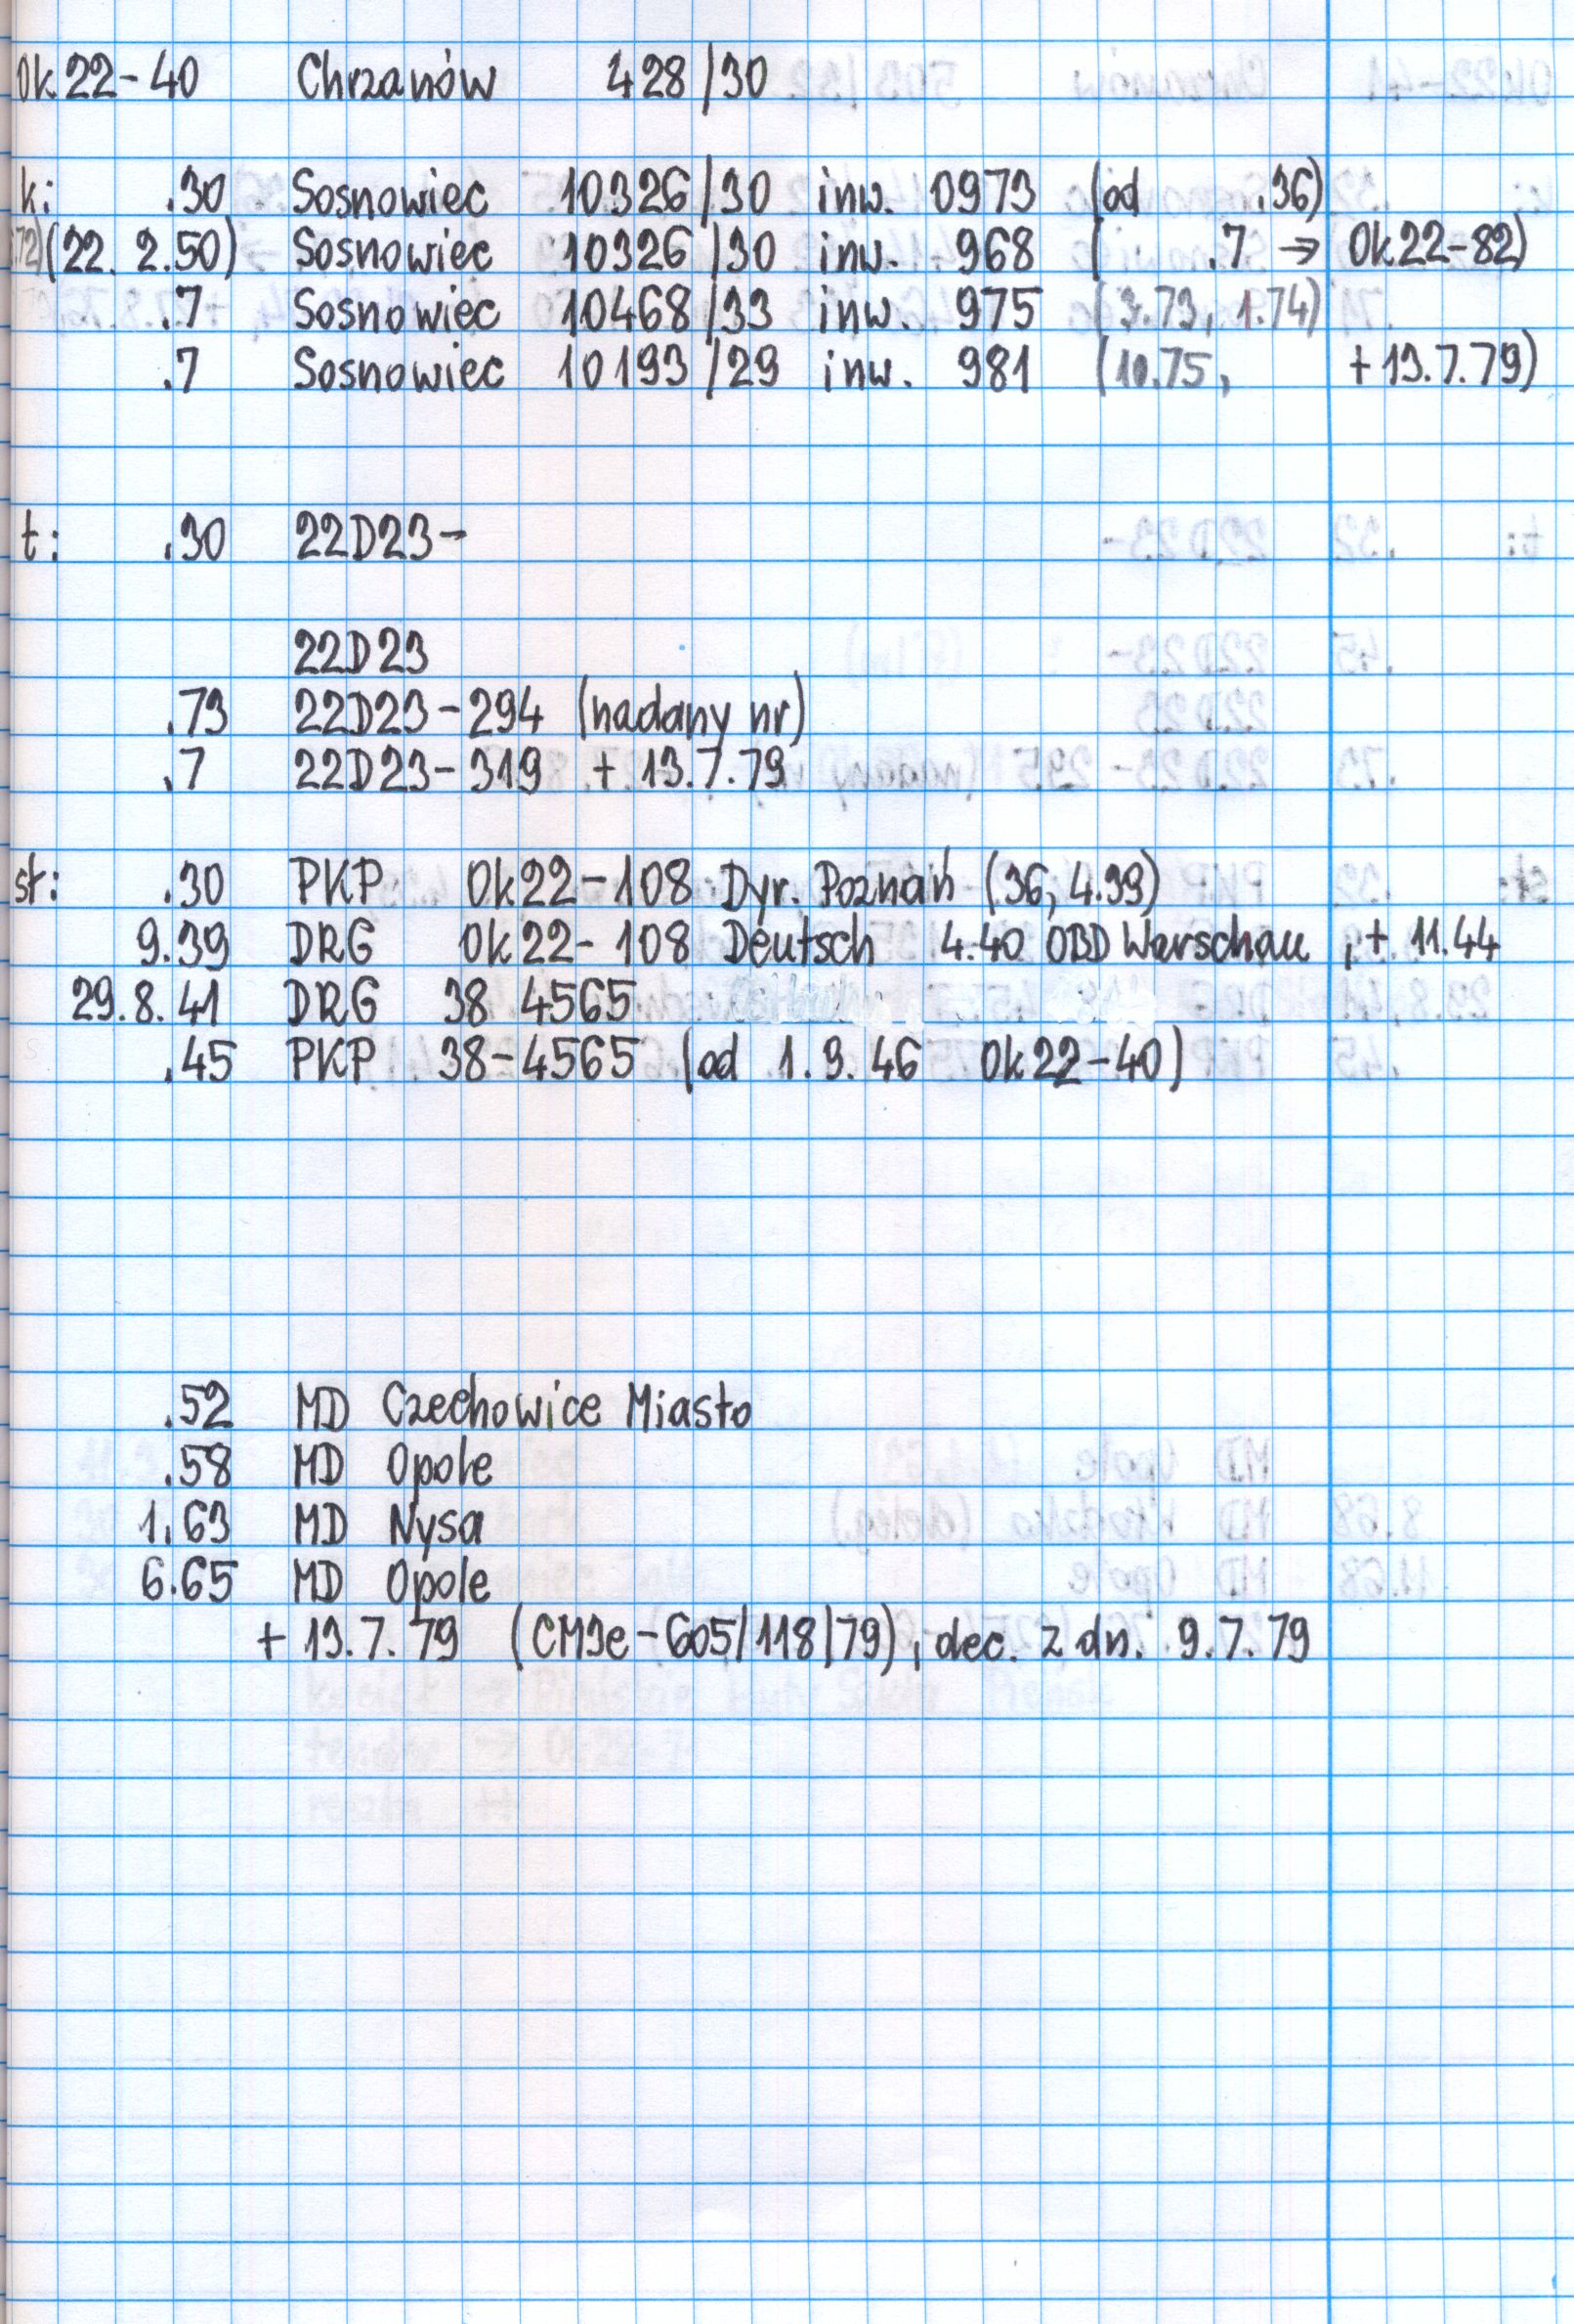 Ok22-40 Chrzanów 428/30
k: .30 Sosnowiec 10326/30 inw. 0973 (od .36)
72) (22. 2.50) Sosnowiec 10326/30 inw. 968 ( .7 → Ok22-82)
.7 Sosnowiec 10468/33 inw. 975 (3.73, 1.74)
.7 Sosnowiec 10193/29 inw. 981 (10.75, + 13.7.79)
t: .30 22D23-
22D23
.73 22D23-294 (nadany nr)
.7 22D23-319 + 13.7.79
st: .30 PKP Ok22-108 Dyr. Poznań (36, 4.39)
9.39 DRG Ok22-108 Deutsch 4.40 OBD Warschau , + 11.44
29.8.41 DRG 38 4565
.45 PKP 38-4565 (od 1.9.46 Ok22-40)
.52 MD Czechowice Miasto
.58 MD Opole
1.63 MD Nysa
6.65 MD Opole
+ 13.7.79 (CM3e-605/118/79), dec. z dn. 9.7.79